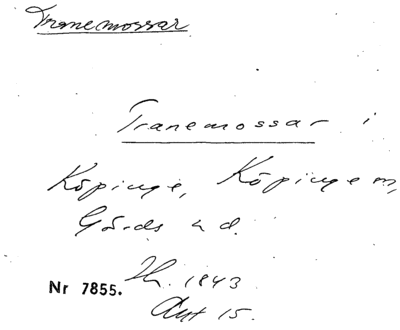 Tranemossar
Tranemossar i
Köpinge, Köpinge m,
Gärds hd.
Nr 7855. Th. 1843
Akt 15.